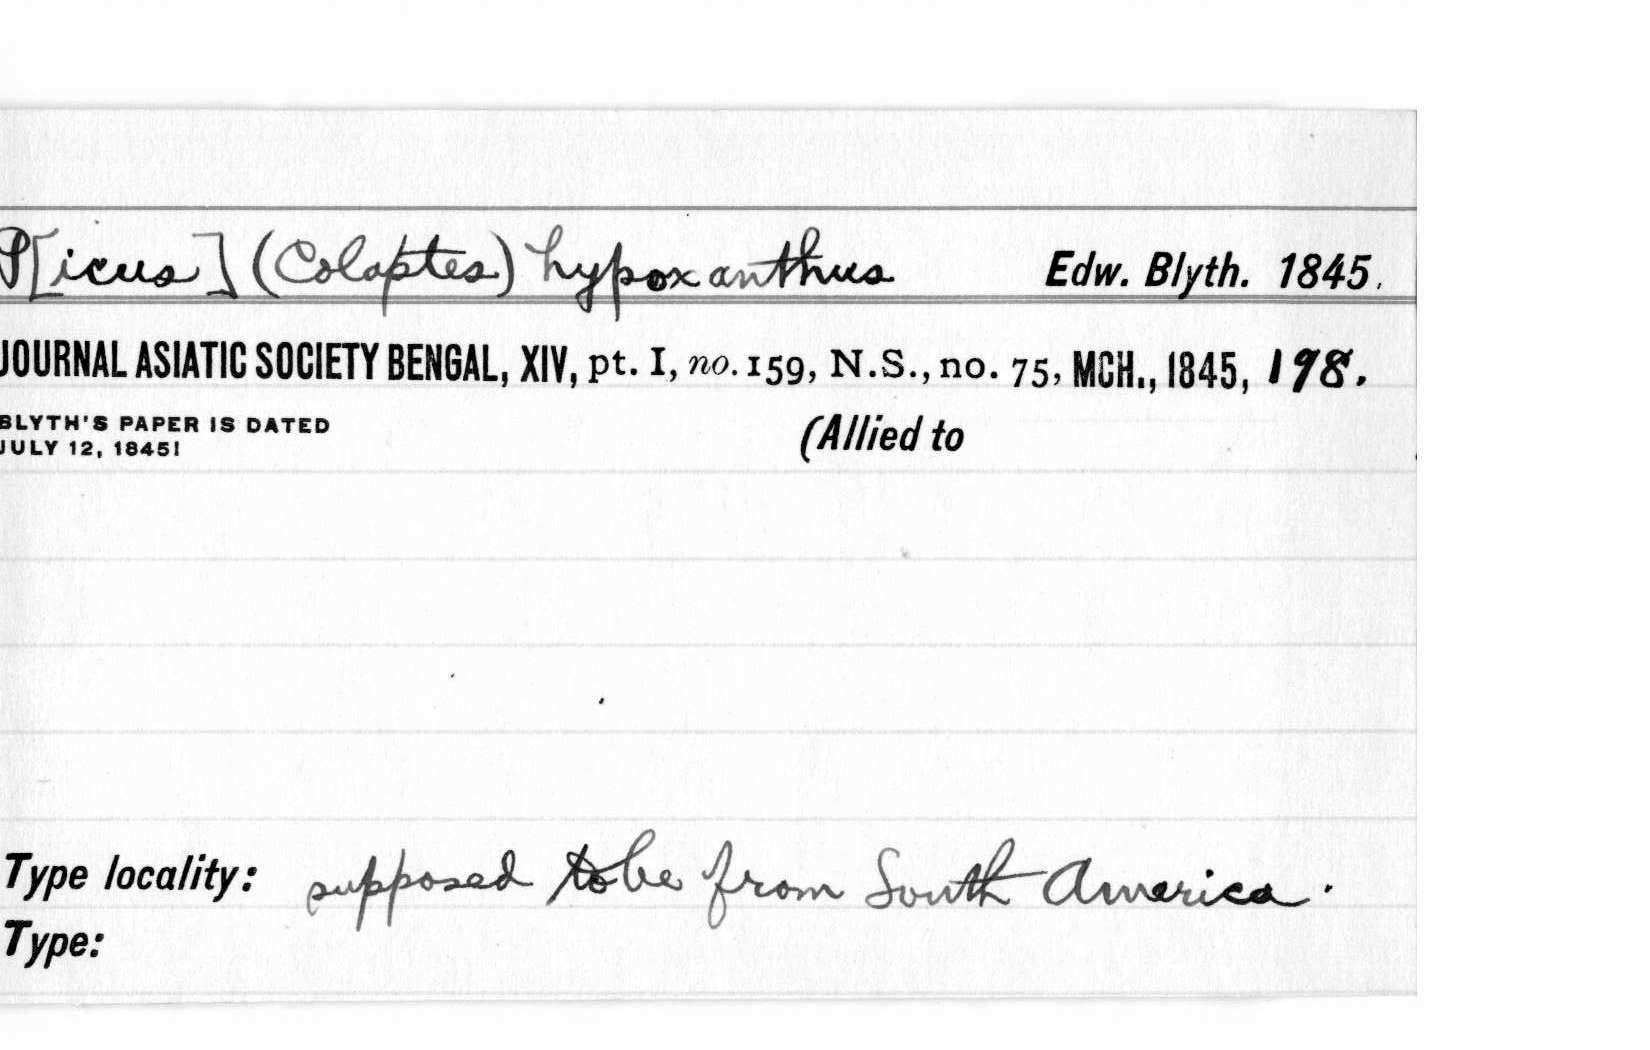 P[icus] (Colaptes) hypoxanthus Edw. Blyth. 1845.
JOURNAL ASIATIC SOCIETY BENGAL, XIV, pt. I, no. 159, N.S., no. 75, MCH., 1845, 198.
BLYTH'S PAPER IS DATED (Allied to
JULY 12, 1845!
Type locality: supposed to be from South America.
Type: